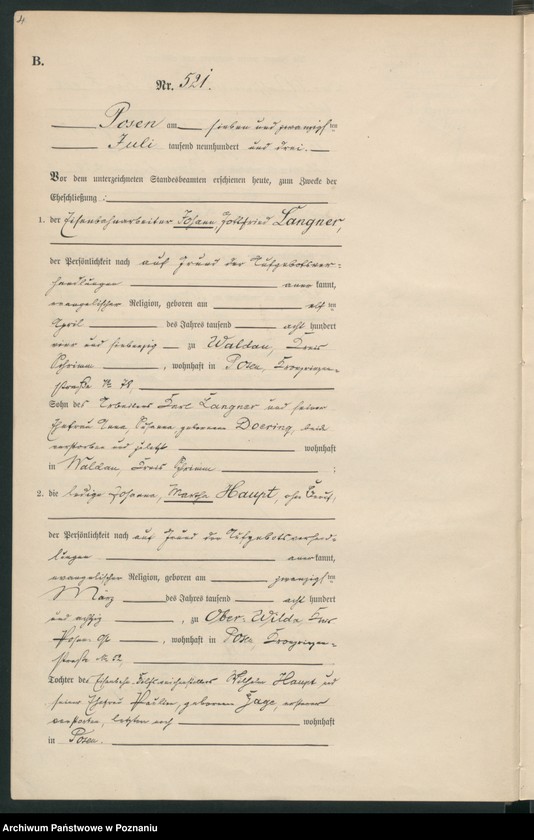 4
B.
Nr. 521.
Posen am sieben und zwanzigsten
Juli tausend neunhundert und drei.
Vor dem unterzeichneten Standesbeamten erschienen heute, zum Zwecke der
Eheschließung:
1. der Eisenbahnarbeiter Johann Gottfried Langner,
der Persönlichkeit nach auf Grund der Aufgebotsver-
handlungen anerkannt,
evangelischer Religion, geboren am elften
April des Jahres tausend acht hundert
und siebenzig zu Waldau, Kreis
Schrimm, wohnhaft in Posen, Kronprinzen-
straße № 78,
Sohn des Arbeiters Karl Langner und seiner
Ehefrau Anna Susanna, geborenen Doering, beide
verstorben und zuletzt wohnhaft
in Waldau, Kreis Schrimm;
2. die ledige Johanna, Martha Haupt, ohne Beruf,
der Persönlichkeit nach auf Grund der Aufgebotsverhand-
lungen anerkannt,
evangelischer Religion, geboren am zwanzigsten
März des Jahres tausend acht hundert
und achtzig, zu Ober-Wilda, Kreis
Posen Ost, wohnhaft in Posen, Kronprinzen-
straße № 52,
Tochter des Wilhelm Haupt und
seiner Ehefrau Pauline, geborenen Zage, ersterer
verstorben, letztere noch wohnhaft
in Posen.
Archiwum Państwowe w Poznaniu